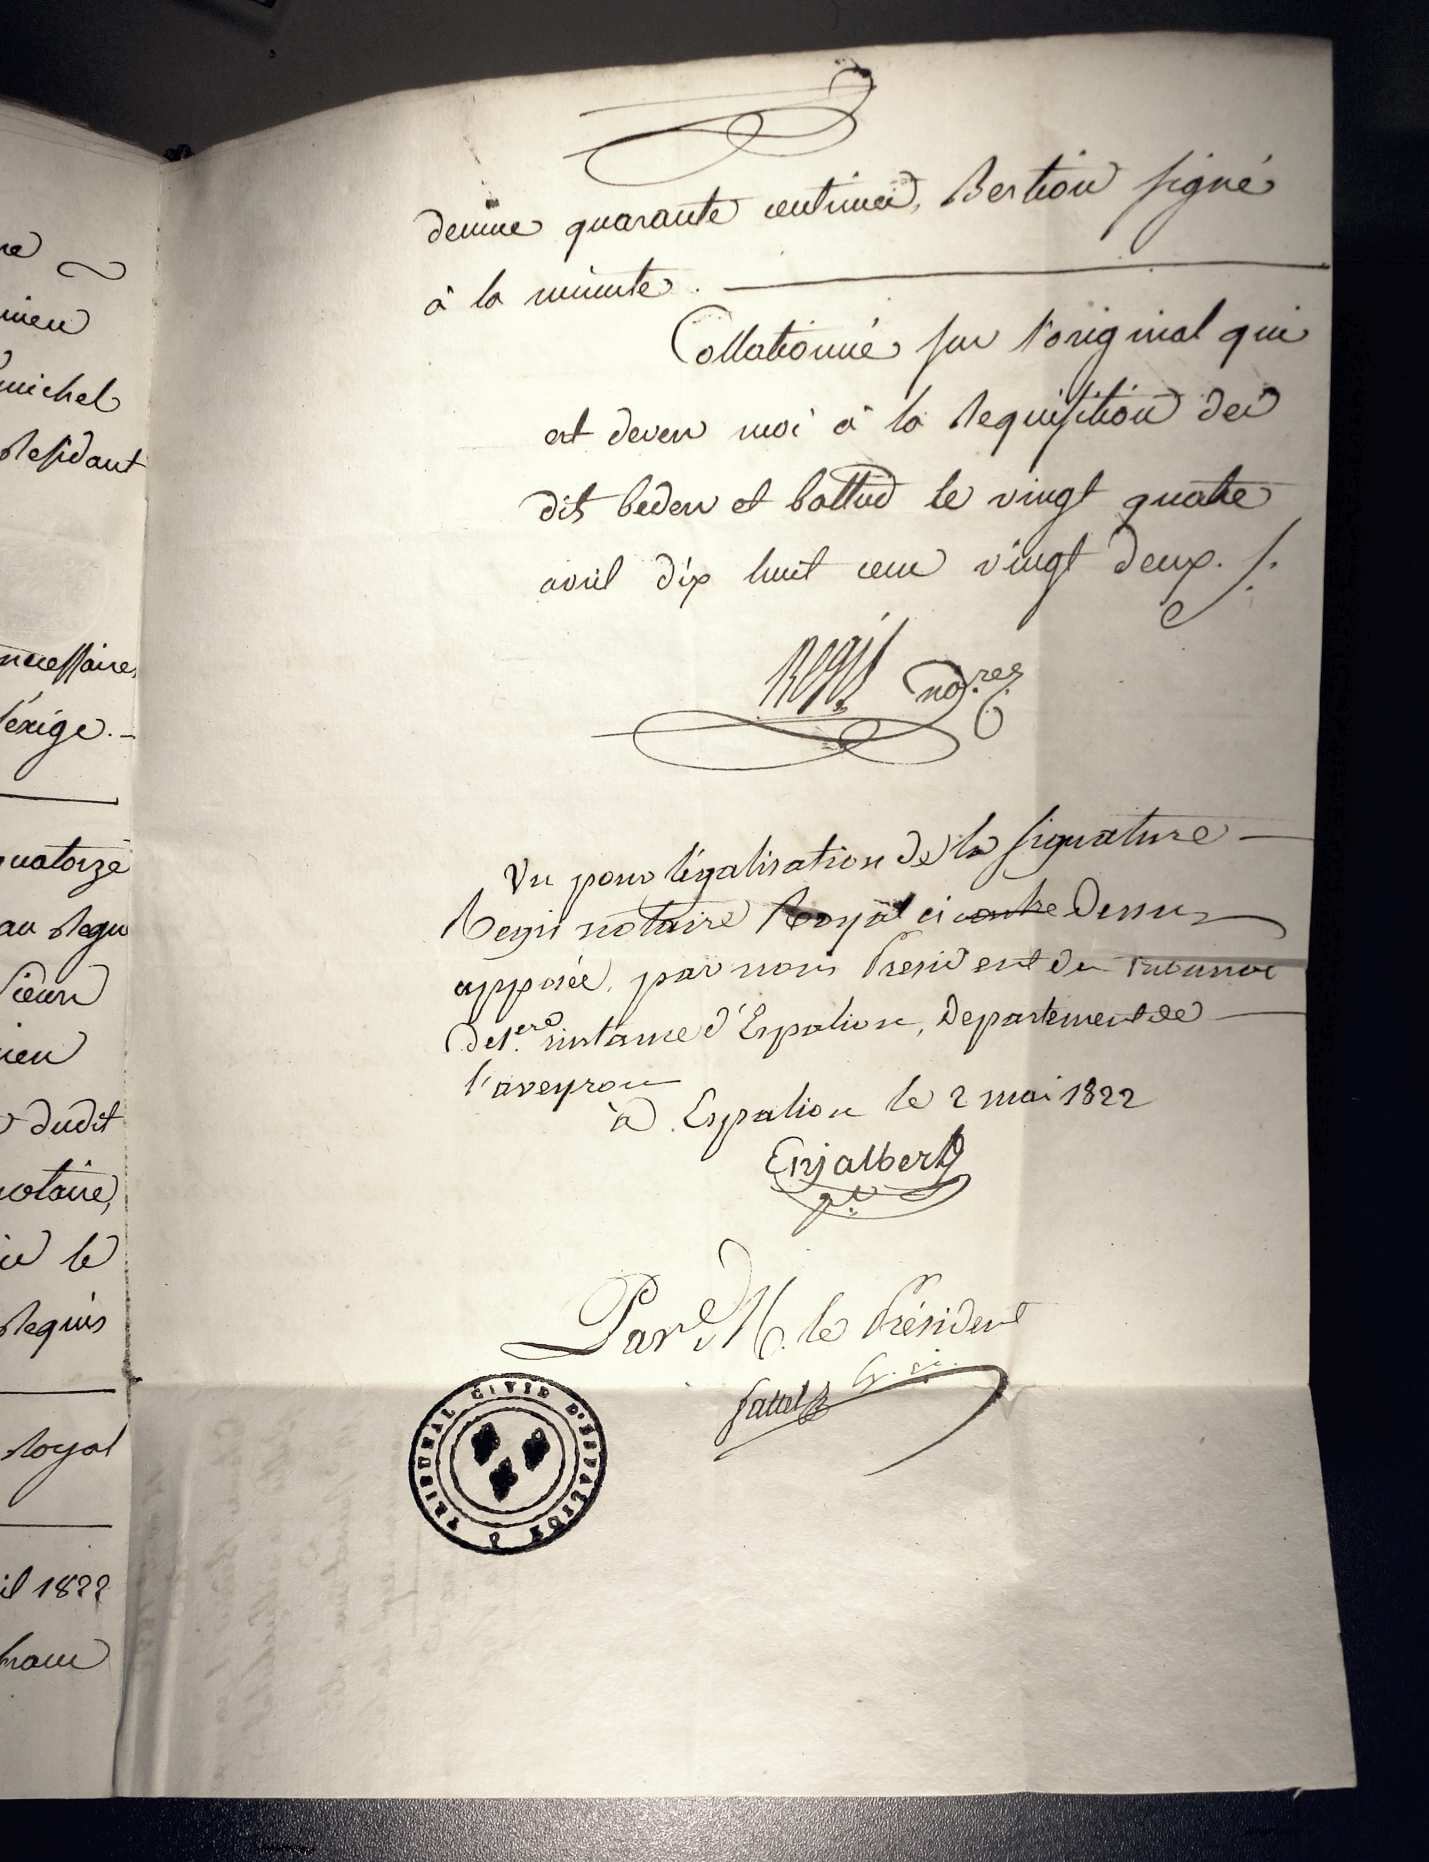 re
mieu
michel
Residant
necessaire
l'exige. -
quatorze
au Requ
sieur
ieu
dudit
notaire,
le
Requis
Royal
il 1822
franc
deuine quarante centimes, Bertion signé
à la minute.
Collationné sur l'original qui
est devers moi à la Requisition des
dits beden et battud le vingt quatre
avril dix huit cens vingt deux. /.
Regis no.res
Vu pour légalisation de la signature
Regis notaire Royal ci contre Dessus
apposée, par nous President du Tribunal
de 1.ere instance d'Espalion, Departement de
l'aveyron
à Espalion le 2 mai 1822
Enjalbert
p.t
Par M. le Président
TRIBUNAL CIVIL D'ESPALION